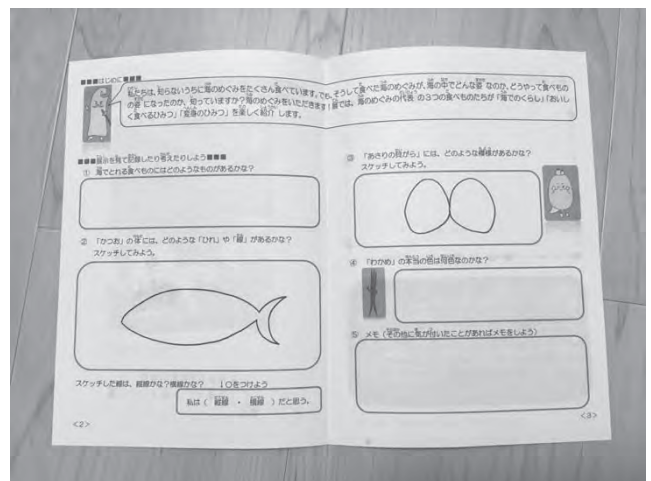 ■■■はじめに■■■
私たちは、知らないうちに海のめぐみをたくさん食べています。でも、そうして食べた海のめぐみが、海の中でどんな姿 なのか、どうやって食べもの
の姿 になったのか、知っていますか?海のめぐみをいただきます!展では、海のめぐみの代表 の3つの食べものたちが「海でのくらし」「おいし
く食べるひみつ」「変身のひみつ」を楽しく紹介 します。
■■■展示を見て記録したり考えたりしよう■■■
① 海でとれる食べものにはどのようなものがあるかな?
② 「かつお」の体には、どのような「ひれ」や「線」があるかな?
スケッチしてみよう。
スケッチした線は、縦線かな?横線かな? ↓○をつけよう
私は( 縦線 ・ 横線 )だと思う。
<2>
③ 「あさりの貝がら」には、どのような模様があるかな?
スケッチしてみよう。
④ 「わかめ」の本当の色は何色なのかな?
⑤ メモ(その他に気が付いたことがあればメモをしよう)
<3>